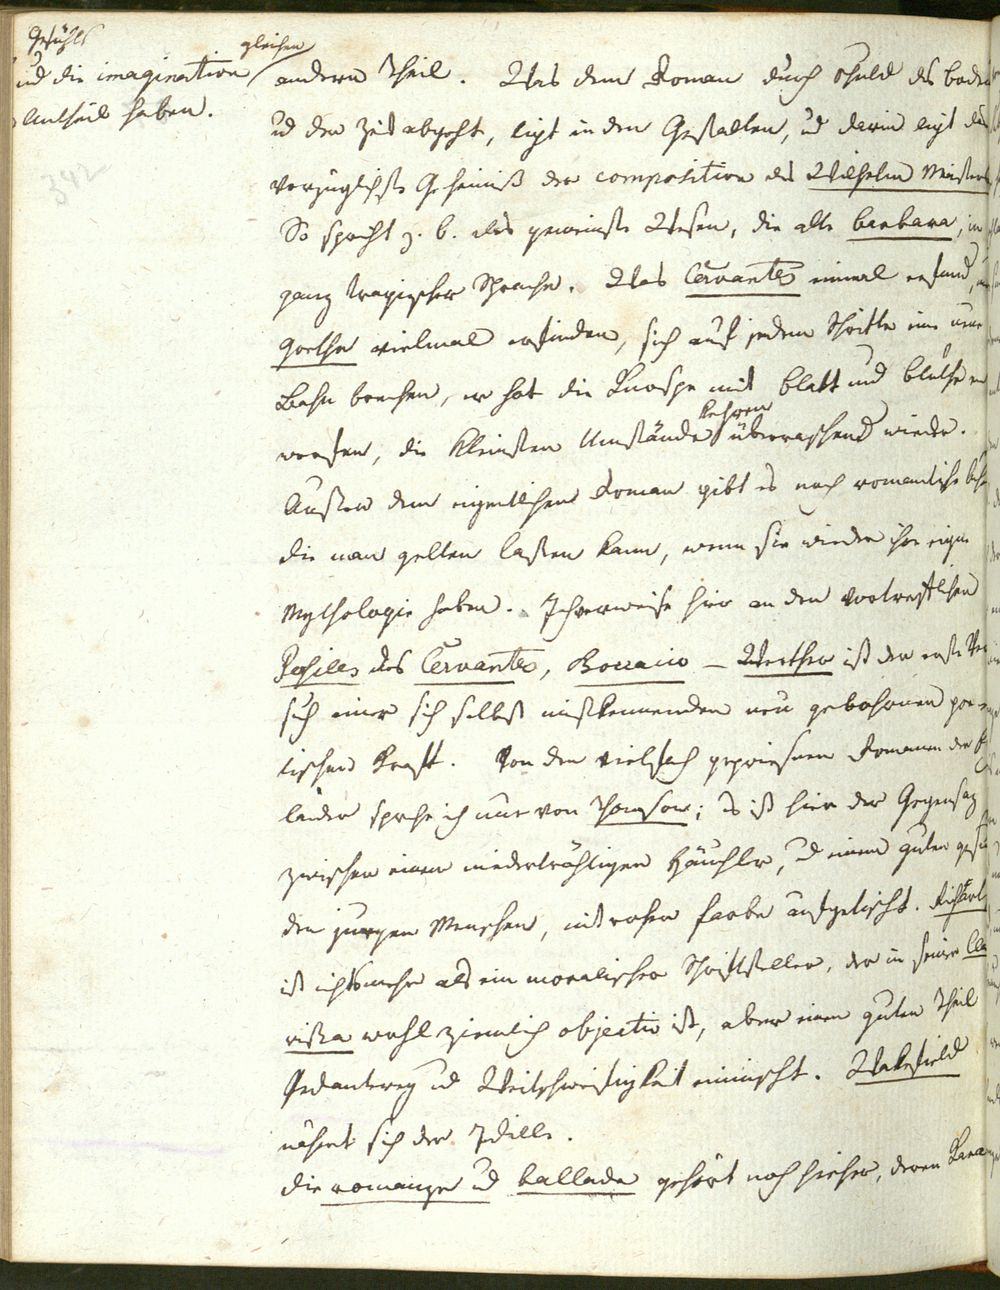 Gefühls
und die imagination gleichen
Antheil haben.
342
andern Theil. Was dem Roman durch Schuld des Bodens
ud der Zeit abgeht, ligt in den Gestalten, ud darin ligt das
vorzüglichste Geheimniß der composition des Wilhelm Meisters
So spricht z. b. das gemeinste Wesen, die alte barbara, in
ganz tragischer Sprache. Was Cervantes einmal erfand,
Goethe vielmal erfinden, sich auf jedem Schritte eine neue
Bahn brechen, er hat die Knospe mit blatt und blüthe
worfen, die kleinsten Umstände kehren überraschend wieder.
Außer dem eigentlichen Roman gibt es noch romantische
die man gelten laßen kann, wenn sie wieder ihre eigne
Mythologie haben. Ich verweise hier an den vortreflichen
Persiles des Cervantes, Boccacio – Werther ist der erste
sich einer sich selbst mißkennenden neu gebohrnen poe-
tischen Kraft. Von den vielfach gepriesnen Romanen der
länder spreche ich nur von Thomson; es ist hier der Gegensaz
zwischen einem niederträchtigen Häuchler, ud einem guten
den jungen Menschen, mit roher farbe aufgetischt.
ist nichts mehr als ein moralischer Schriftsteller, der in seiner Cla
rißa wohl ziemlich objectiv ist, aber einen guten Theil
Pedanterey ud Weitschweifigkeit einmischt. Wakefield
nähert sich der Idille.
die romanze ud ballade gehört noch hieher, deren